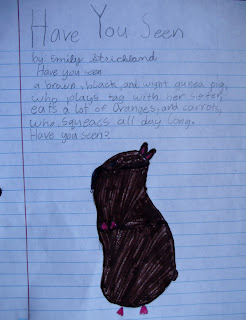 Have You Seen
by Emily Strickland
Have you seen
a brown, black, and wight gunea pig,
who plays tag with her sister,
eats a lot of Oranges, and carrots,
who squeacs all day long.
Have you seen?